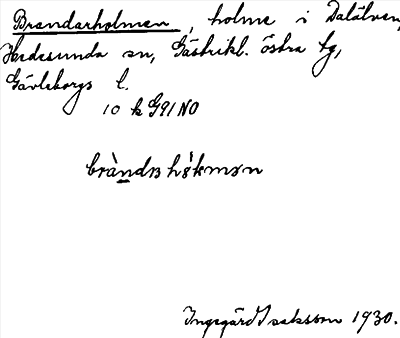 Brandarholmen, holme i Dalälven,
Hedesunda sn, Gästrikl. östra tg,
Gävleborgs l.
10 k G91 NO
bràndɜ hò̜kmən
Ingegärd Isaksson 1930.